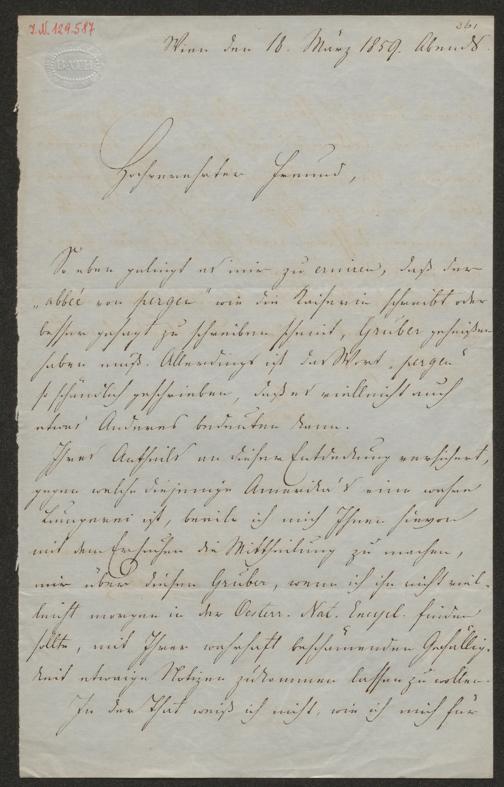 J.N. 129.587
361
BATH
Wien den 18. März 1859. Abends.
Hochverehrter Freund,
So eben gelingt es mir zu eruiren, daß der
„abbé von pergen" wie die Kaiserin schreibt oder
besser gesagt zu schreiben scheint, Gruber geheißen
haben muß. Allerdings ist das Wort „pergen"
so schändlich geschrieben, daß es vielleicht auch
etwas Anderes bedeuten kann.
Ihres Antheils an dieser Entdeckung versichert,
gegen welche diejenige Amerika's eine wahre
Lumperei ist, beeile ich mich Ihnen hievon
mit dem Ersuchen die Mittheilung zu machen,
mir über diesen Gruber, wenn ich ihn nicht viel-
leicht morgen in der Oesterr. Nat. Encycl. finden
sollte, mit Ihrer wahrhaft beschämenden Gefällig-
keit etwaige Notizen zukommen lassen zu wollen.
In der That weiß ich nicht, wie ich mich für